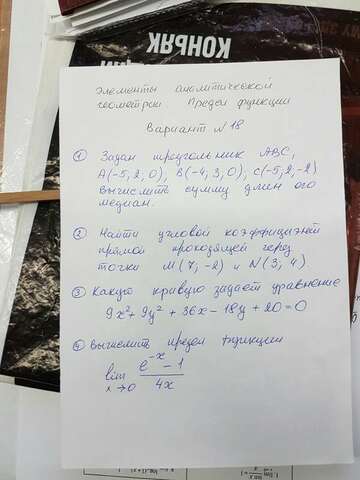 КОНЬЯК
Элементы аналитической
геометрии. Предел функции
Вариант №18
① Задан треугольник ABC,
A(-5, 2, 0), B(-4, 3, 0), C(-5, 2, -2)
Вычислить сумму длин его
медиан.
② Найти угловой коэффициент
прямой проходящей через
точки M(7; -2) и N(3, 4)
③ Какую кривую задаёт уравнение
9x²+9y²+36x-18y+20=0
④ Вычислить предел функции
lim e^{-x} - 1
x→0 4x